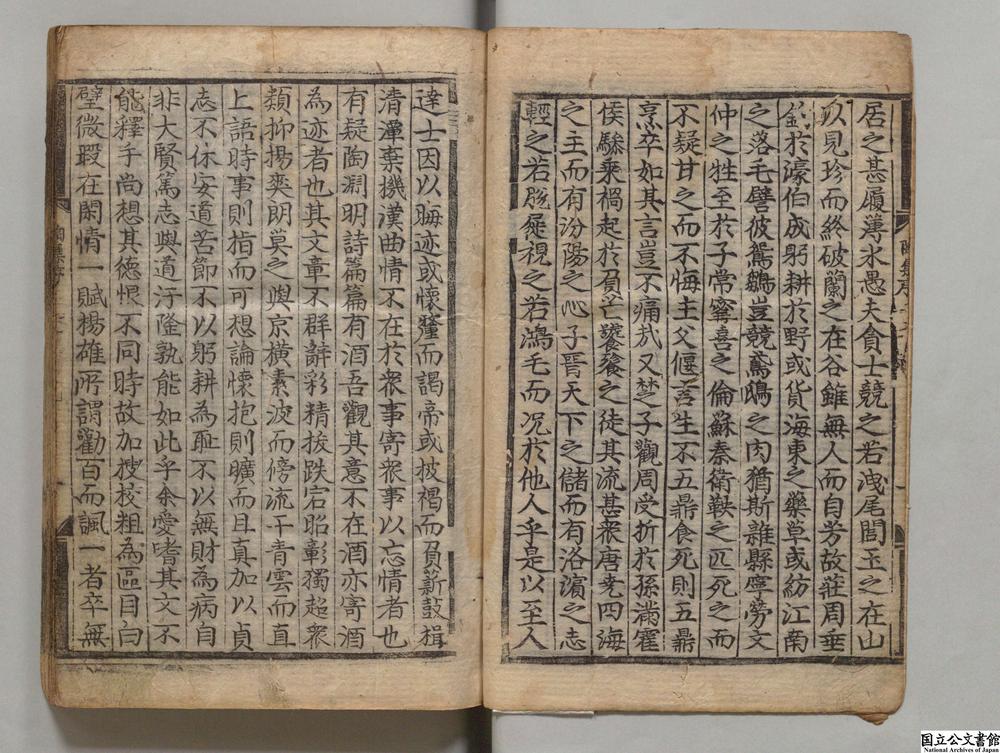 居之甚履薄氷愚夫貪士競之若洩尾閭玉之在山
以見珍而終破蘭之在谷雖無人而自芳故莊周垂
釣於濠伯成躬耕於野或貨海東之藥草或紡江南
之落毛譬彼鴛鶵豈競鳶鴟之肉猶斯雜縣寧勞文
仲之牲至於子常寗喜之倫蘇秦衛鞅之匹死之而
不疑甘之而不悔主父偃言生不五鼎食死則五鼎
烹卒如其言豈不痛㢤又楚子觀周受折於孫滿霍
侯驂乗禍起於負芒饕餮之徒其流甚衆唐堯四海
之主而有汾陽之心子晉天下之儲而有洛濵之志
輕之若脫屣視之若鴻毛而况於他人乎是以至人
達士因以晦迹或懷釐而謁帝或披褐而負薪鼓楫
清潭棄機漢曲情不在於衆事寄衆事以忘情者也
有疑陶淵明詩篇篇有酒吾觀其意不在酒亦寄酒
為迹者也其文章不群辭彩精拔跌宕昭彰獨超衆
類抑揚爽朗莫之與京橫素波而傍流干青雲而直
上語時事則指而可想論懷抱則曠而且真加以貞
志不休安道苦節不以躬耕為耻不以無財為病自
非大賢篤志與道汙隆孰能如此乎余愛嗜其文不
能釋手尚想其德恨不同時故加搜校粗為區目白
璧微瑕在閑情一賦楊雄所謂勸百而諷一者卒無
国立公文書館
National Archives of Japan